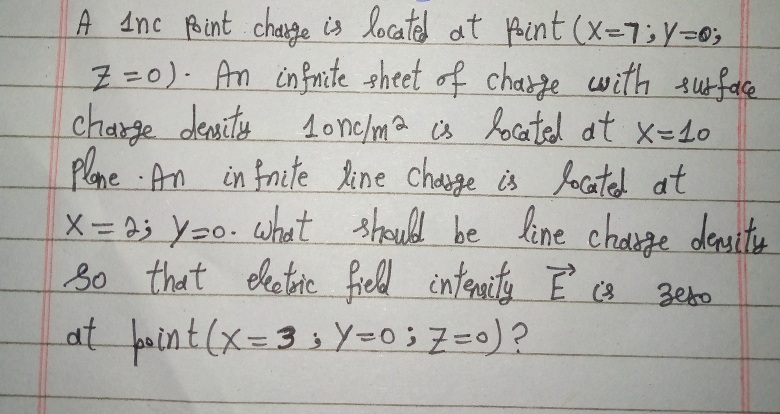 A 1nc Point charge is located at point (X=7; Y=0;
Z=0). An infnite sheet of charge with surface
charge density 10nc/m2 is located at X=10
Plane. An infnite line charge is located at
X=2; Y=0. What should be line charge density
so that electric field intensity E⃗ is zero
at point (X=3; Y=0; Z=0)?